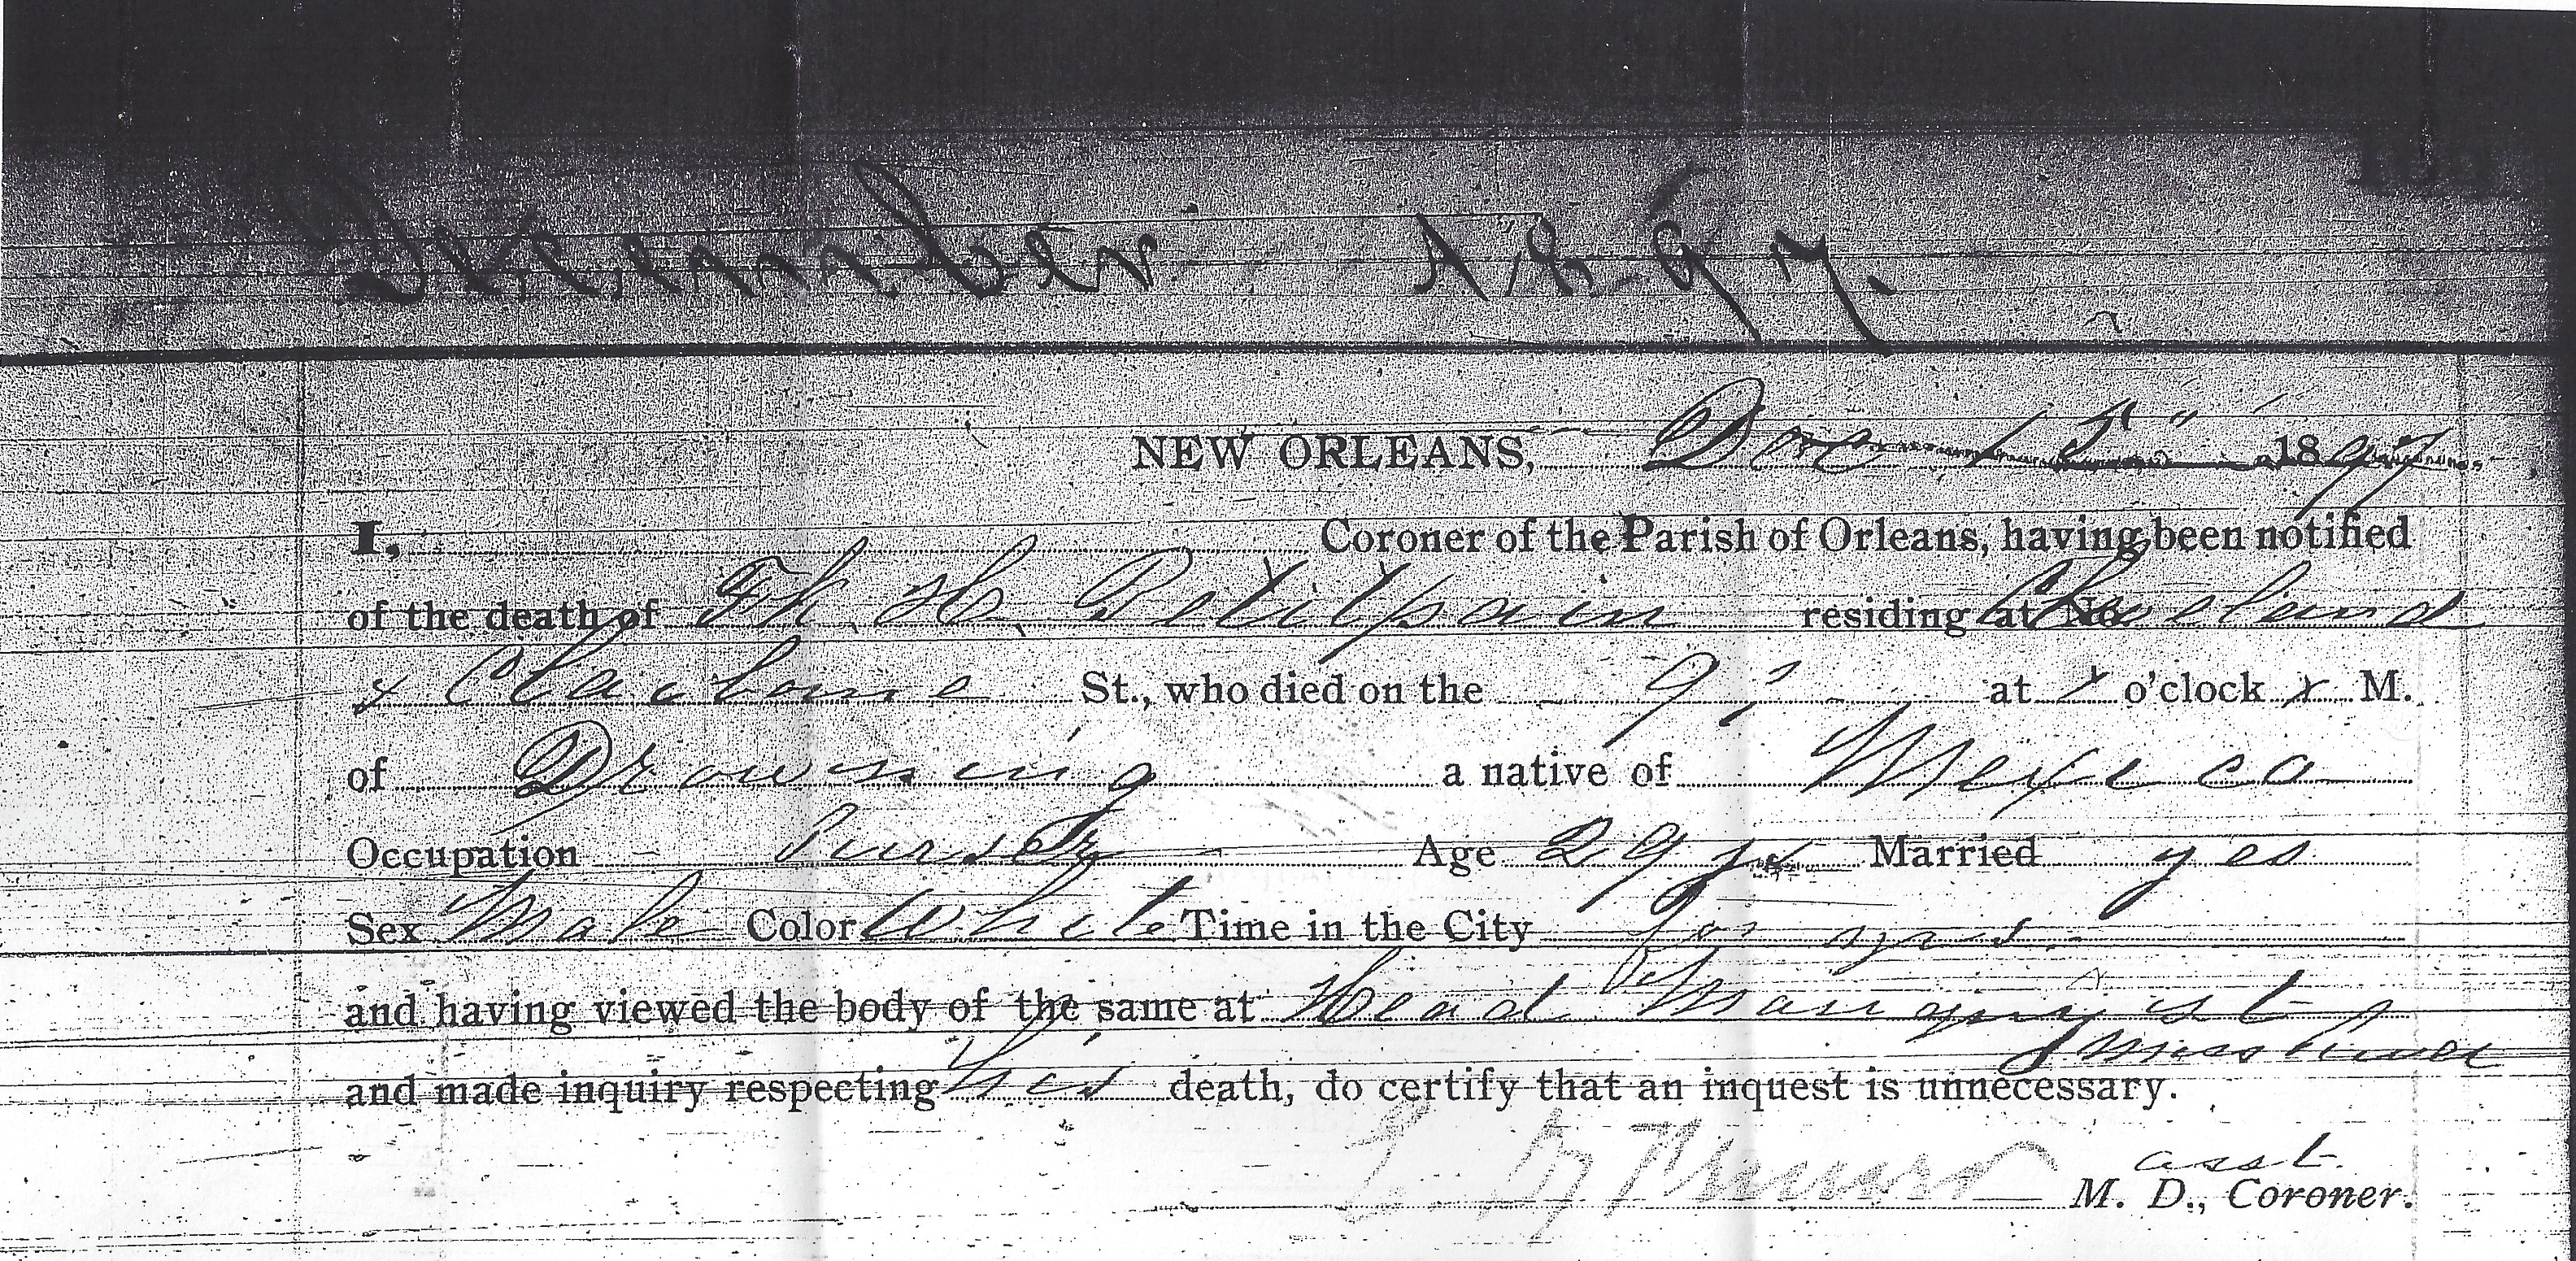 December 1897.
NEW ORLEANS, Dec 15" 1897
I, Coroner of the Parish of Orleans, having been notified
of the death of Th. H. Petitpain residing at No Cleveland
& Claiborne St., who died on the 9" at x o'clock x M.
of Drowning a native of Mexico
Occupation Age 29 yrs Married yes
Sex Male Color White Time in the City yrs.
and having viewed the body of the same at Head St
Miss River
and made inquiry respecting his death, do certify that an inquest is unnecessary.
asst.
M. D., Coroner.